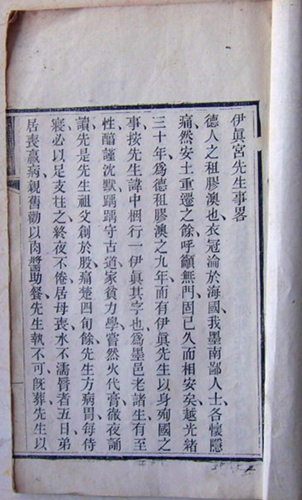 伊眞宮先生事畧
德人之租膠澳也衣冠淪於海國我墨南鄙人士各懷隱
痛然安土重遷之餘呼籲無門固已久而相安矣越光緒
三十年爲德租膠澳之九年而有伊眞先生以身殉國之
事按先生諱中梱行一伊眞其字也爲墨邑老諸生有至
性醅謹沈默踽踽守古道家貧力學嘗然火代膏徹夜誦
讀先是先生祖父創於股痛楚四旬餘先生方病胃每侍
寢必以足支柱之終夜不倦居母喪水不濡脣者五日弟
居喪羸病親舊勸以肉醬助餐先生執不可旣葬先生以